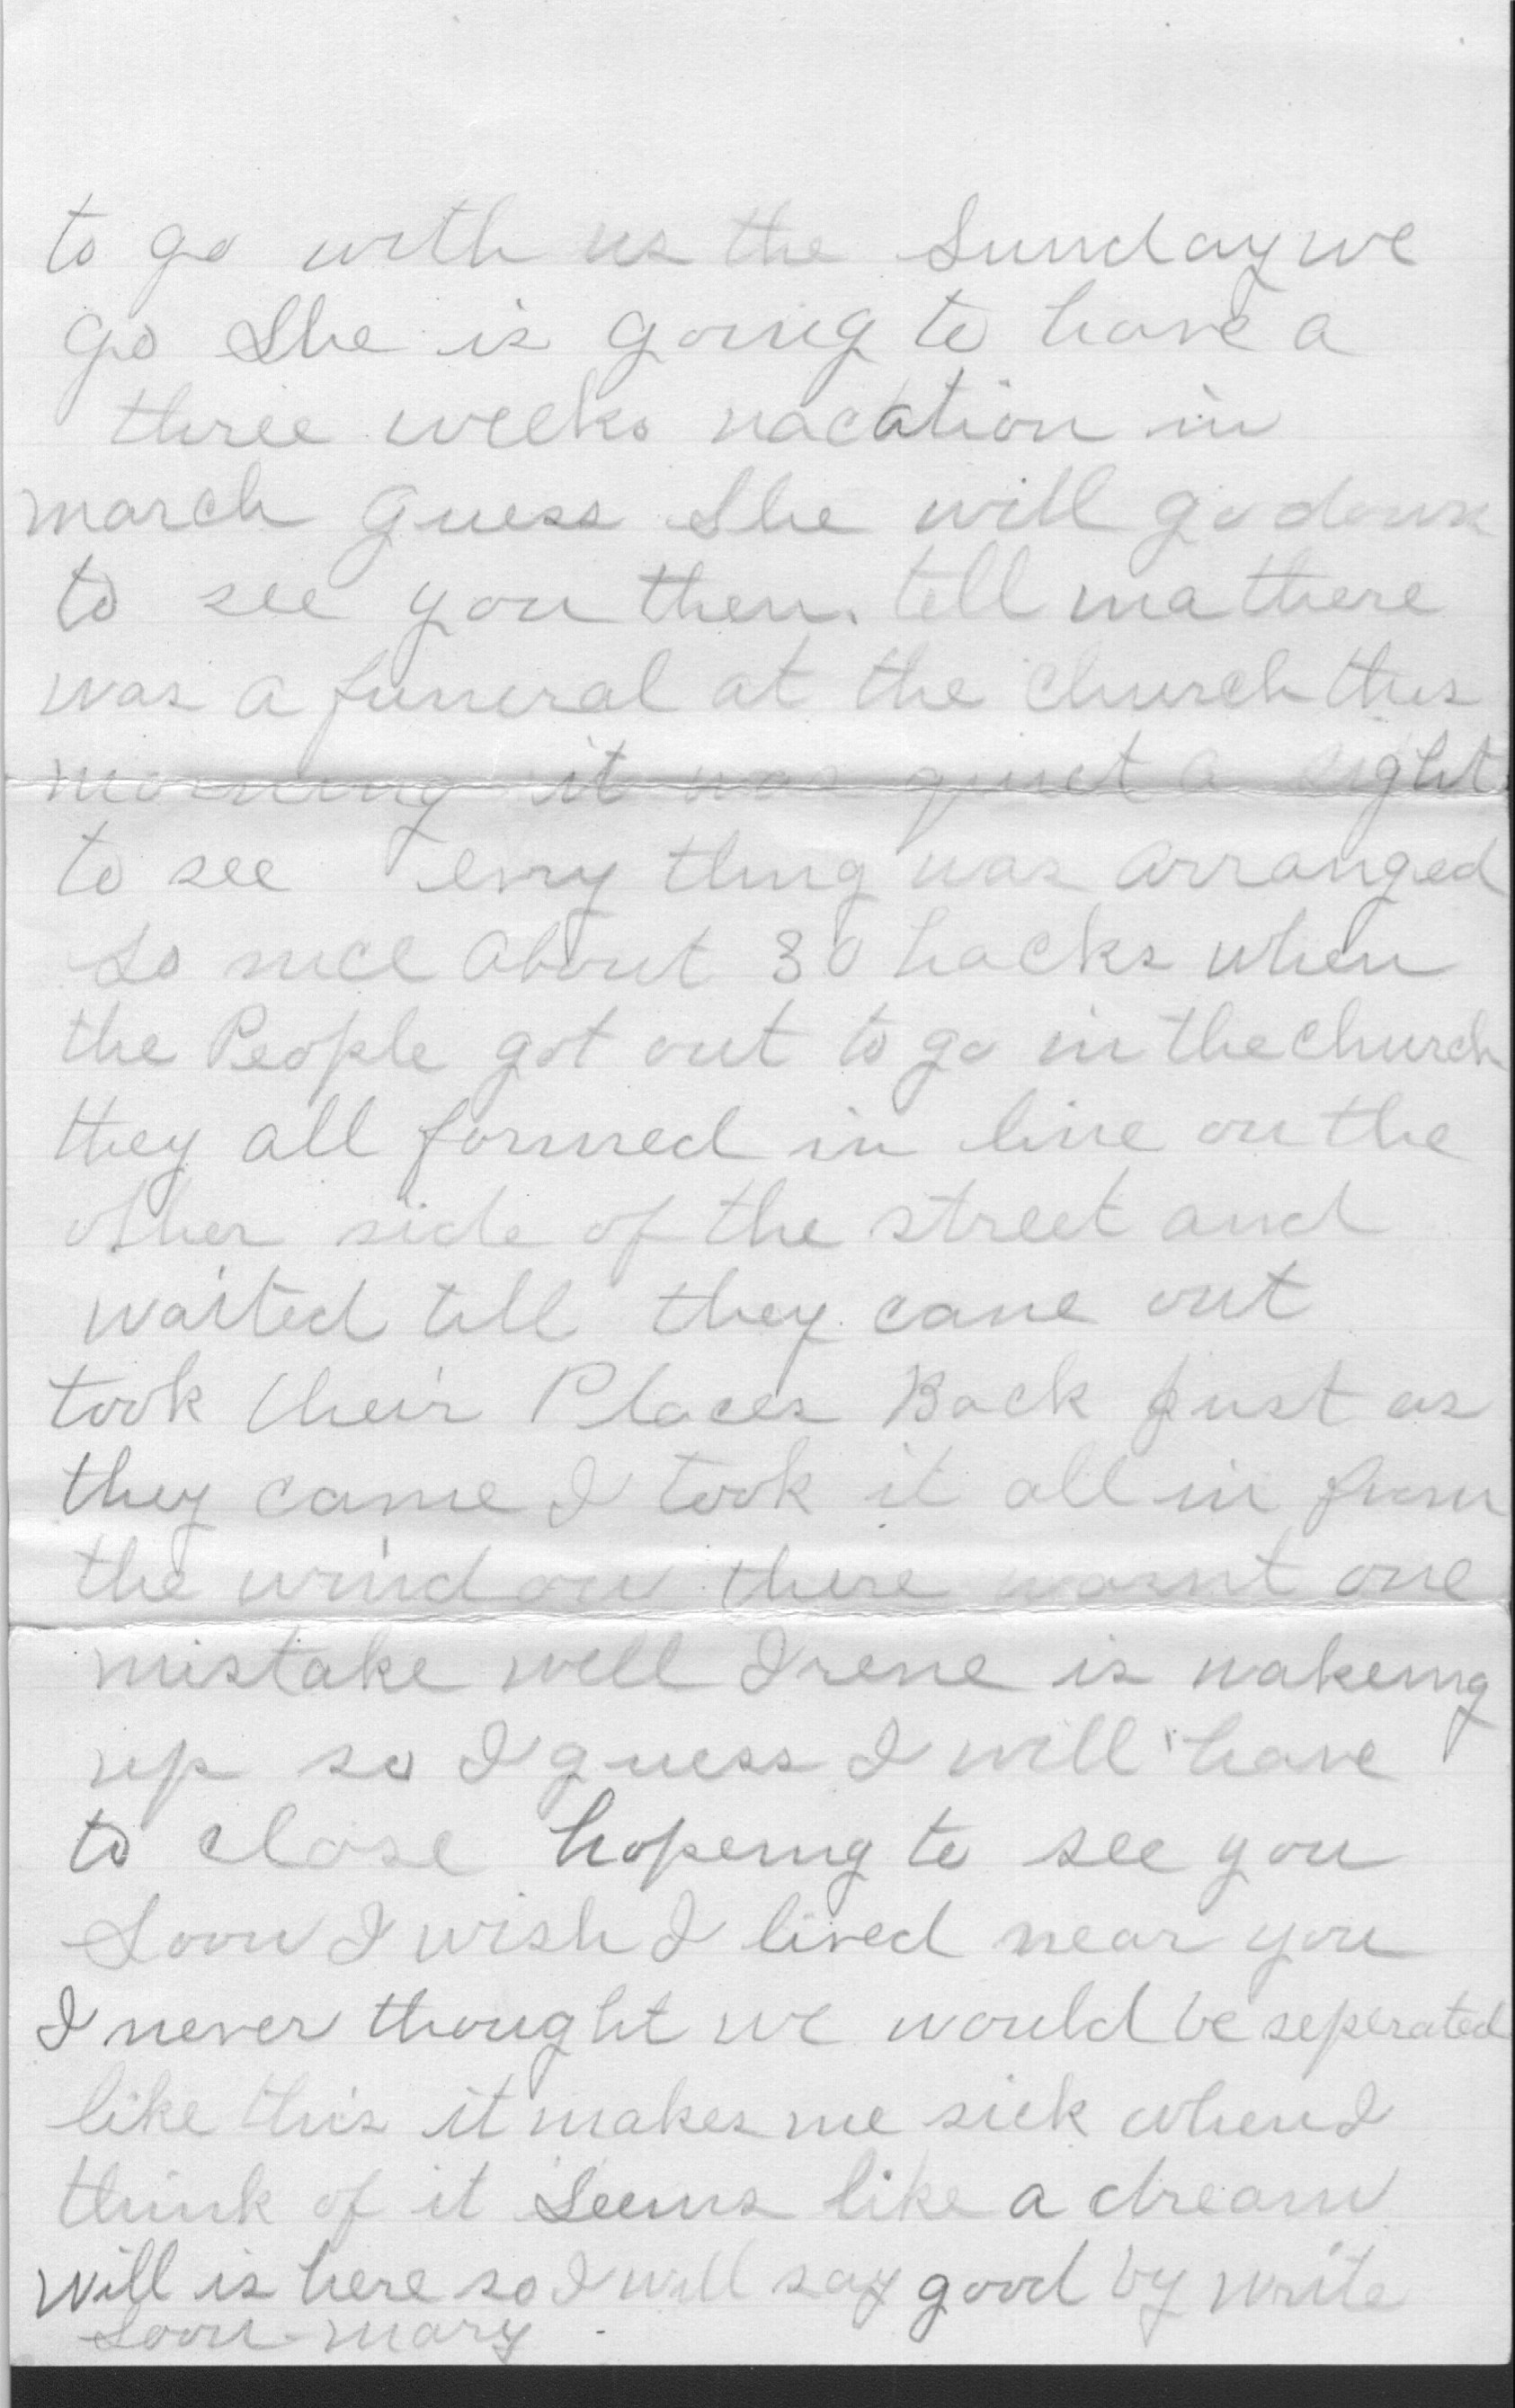 to go with us the Sunday we
go She is going to have a
three weeks vacation in
march Guess She will go down
to see you then. tell ma there
was a funeral at the Church this
morning it was quiet a sight
to see evry thing was arranged
So nice about 30 hacks when
the People got out to go in the church
they all formed in line on the
other side of the street and
waited till they came out
took their Places Back just as
they came I took it all in from
the window there wasnt one
mistake well Irene is wakeing
up so I guess I will have
to close hopeing to see you
Soon I wish I lived near you
I never thought we would be seperated
like this it makes me sick when I
think of it Seems like a dream
Will is here so I will say good by write
Soon mary